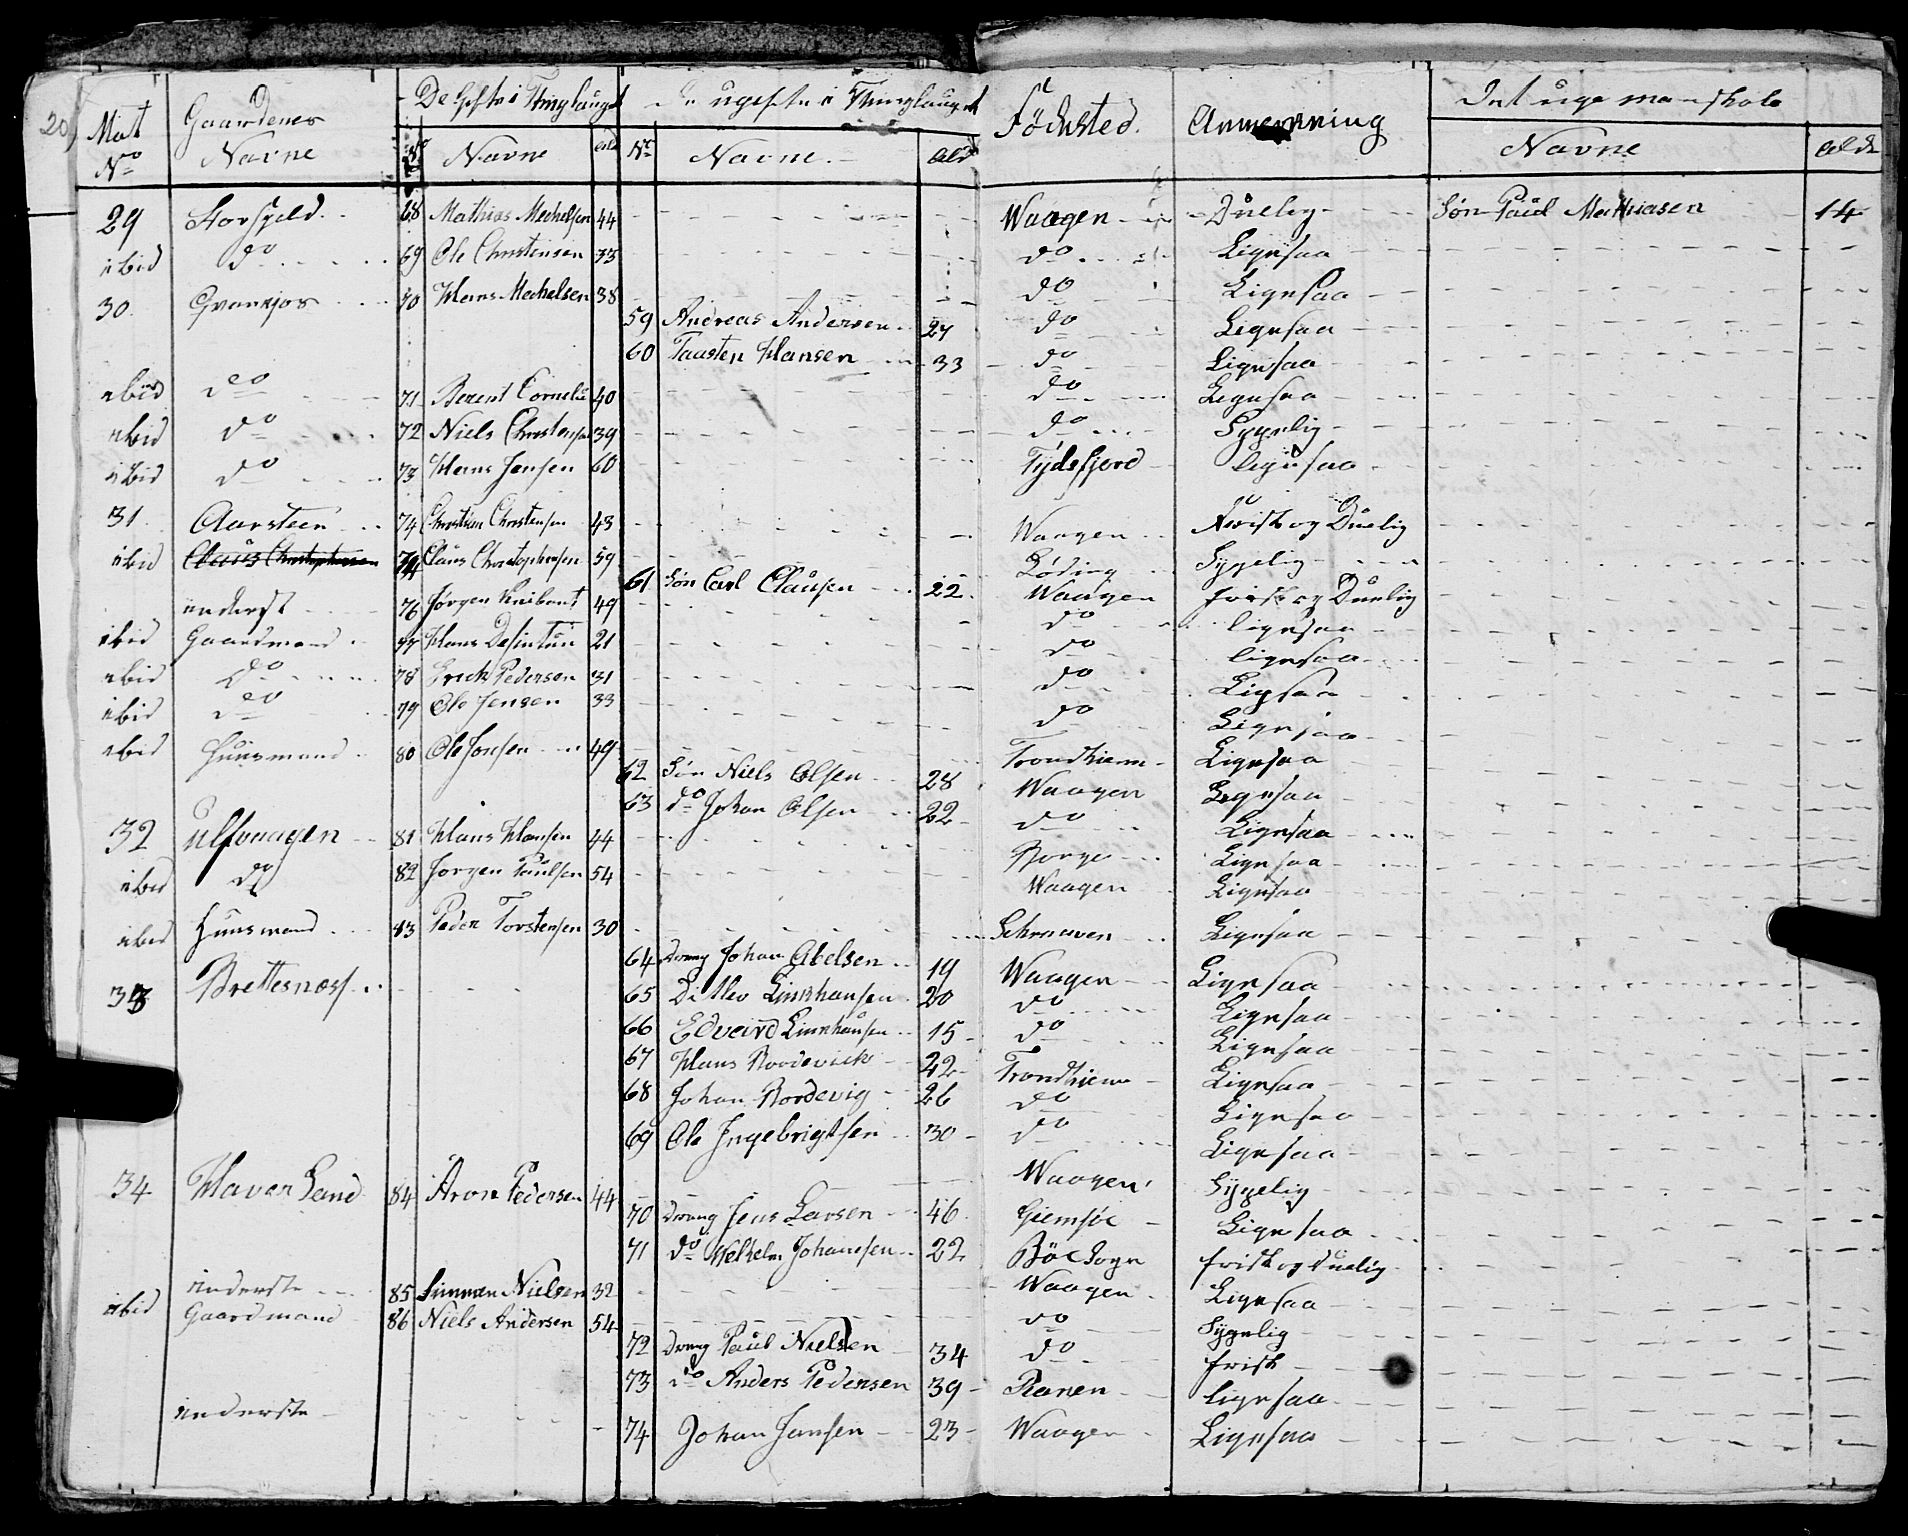 20
Mat No Gaardenes Navne De Gifte i Thinglauget No Navne Ald De ugifte i Thinglauget No Navne Ald Fødested Anmerkning Det uge mandskab Navne Alde
29 Storfjeld 68 Mathias Mechelsen 44 Waagen Duelig Søn Paul Mathiasen 14
ibid do 69 Ole Christensen 35 do Ligesaa
30 70 Hans Mechelsen 38 do Ligesaa
59 Andreas Andersen 27 do Ligesaa
60 Taasten Hansen 33 do Ligesaa
ibid do 71 Berent Corneliu 40 do Ligesaa
ibid do 72 Niels Christensen 39 do Sygelig
ibid do 73 Hans Jensen 60 Tydsfjord ligesaa
31 Aarsteen 74 Christian Christensen 43 Waagen Frisk og Duelig
ibid Claus Christophersen 74 Claus Christophersen 59 Løding Sygelig
61 Søn Carl Clausen 22 Waagen frisk og Duelig
inderst 76 Jørgen 49 do ligesaa
ibid Gaardmand 77 Hans 21 do ligesaa
ibid do 78 Erick Pedersen 31 do Ligsaa
ibid do 79 Ole Jensen 33 do Ligesaa
ibid Huusmand 80 Ole Jonsen 49 Trondhiem Ligesaa
62 Søn Niels Olsen 28 Waagen Ligesaa
63 do Johan Olsen 22 do Ligesaa
32 Ulfvaagen 81 Hans Hansen 44 Borge Ligesaa
ibid do 82 Jørgen Paulsen 54 Waagen Ligesaa
ibid Huusmand 83 Peder Torstensen 30 Schraaven Ligesaa
64 Dreng Johan Abelsen 19 Waagen Ligesaa
33 Brettesnæss 65 Ditlev Linkhausen 20 do Ligesaa
66 Edvard Linkhausen 15 do Ligesaa
67 Hans Bordevick 22 Trondhiem Ligesaa
68 Johan Bordevig 26 do Ligesaa
69 Ole Ingebrigtsen 30 do Ligesaa
34 Haversand 84 Aron Pedersen 44 Waagen Sygelig
70 Dreng Jens Larsen 46 Giemsøe Ligesaa
71 do Welhelm Johannesen 22 Bøe Sogn frisk og Duelig
inderste 85 Simmen Nielsen 32 Waagen Ligesaa
ibid Gaardmand 86 Niels Andersen 54 do Sygelig
72 Dreng Paul Nielsen 34 do frisk
73 do Anders Pedersen 39 Ranen ligesaa
inderste 74 Johan Jensen 23 Waagen Ligesaa